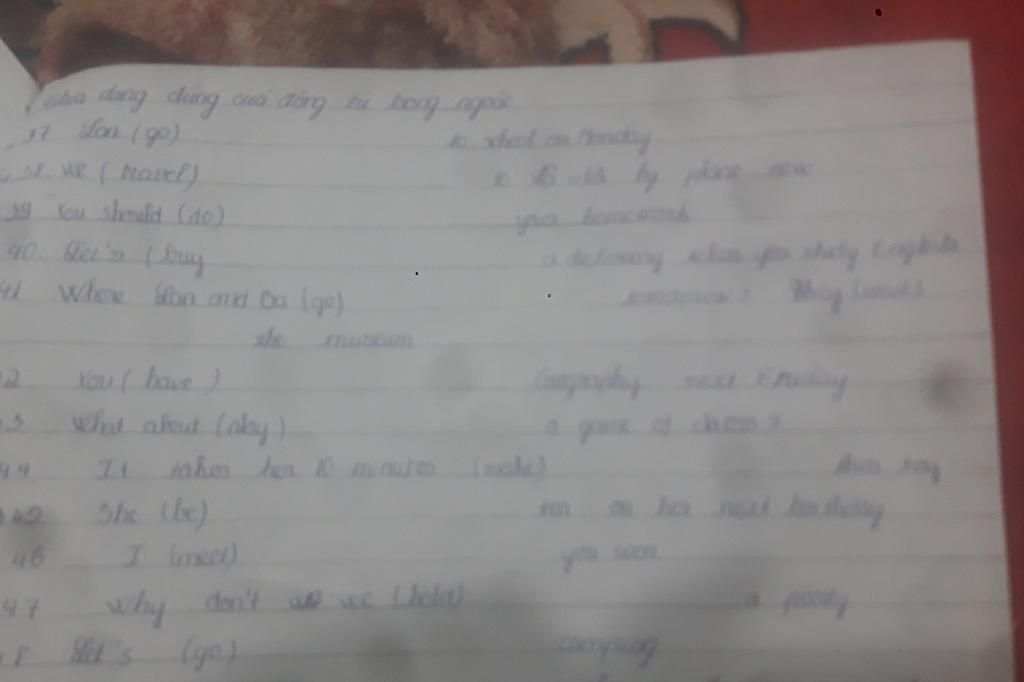 Chia dạng đúng của động từ trong ngoặc
37 Lan (go) to school on Monday
38. We (travel) to by plane now
39 You should (do) your homework
40. Let's (buy a dictionary when you study English
41 Where Lan and Ba (go) tomorrow? They (visit)
the museum
2 You (have) Geography next Friday
3 What about (play) a game of chess?
44. It takes her 10 minutes (make) this toy
45 She (be) ten on her next birthday
46 I (meet) you soon
47 Why don't we (hold) a party
8 Let's (go) camping